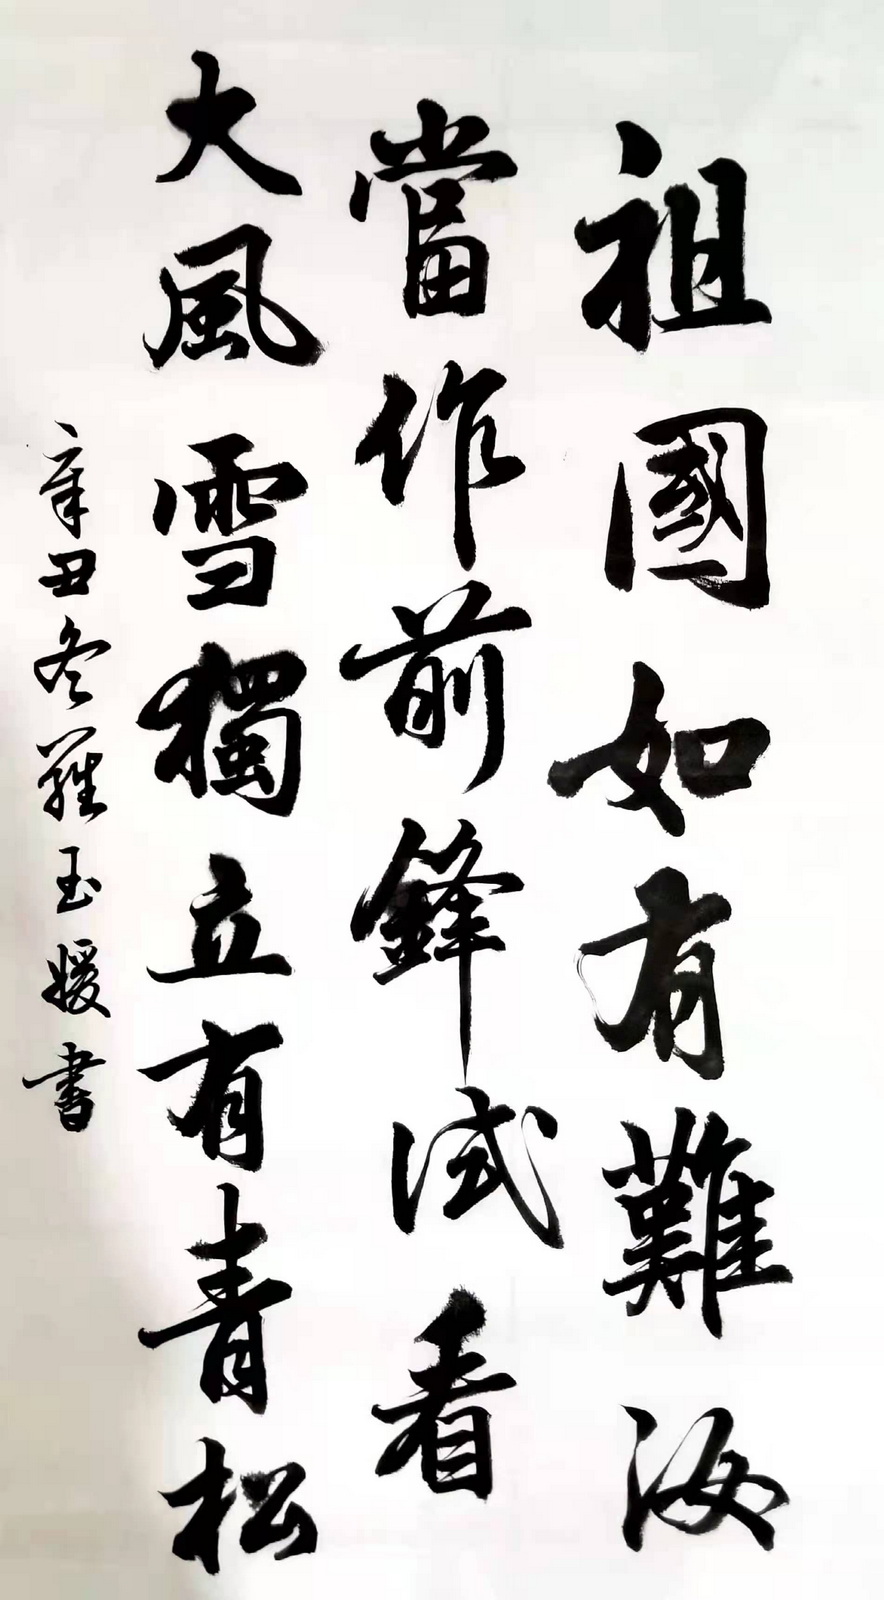 祖國如有難汝
當作前鋒試看
大風雪獨立有青松
辛丑冬羅玉媛書